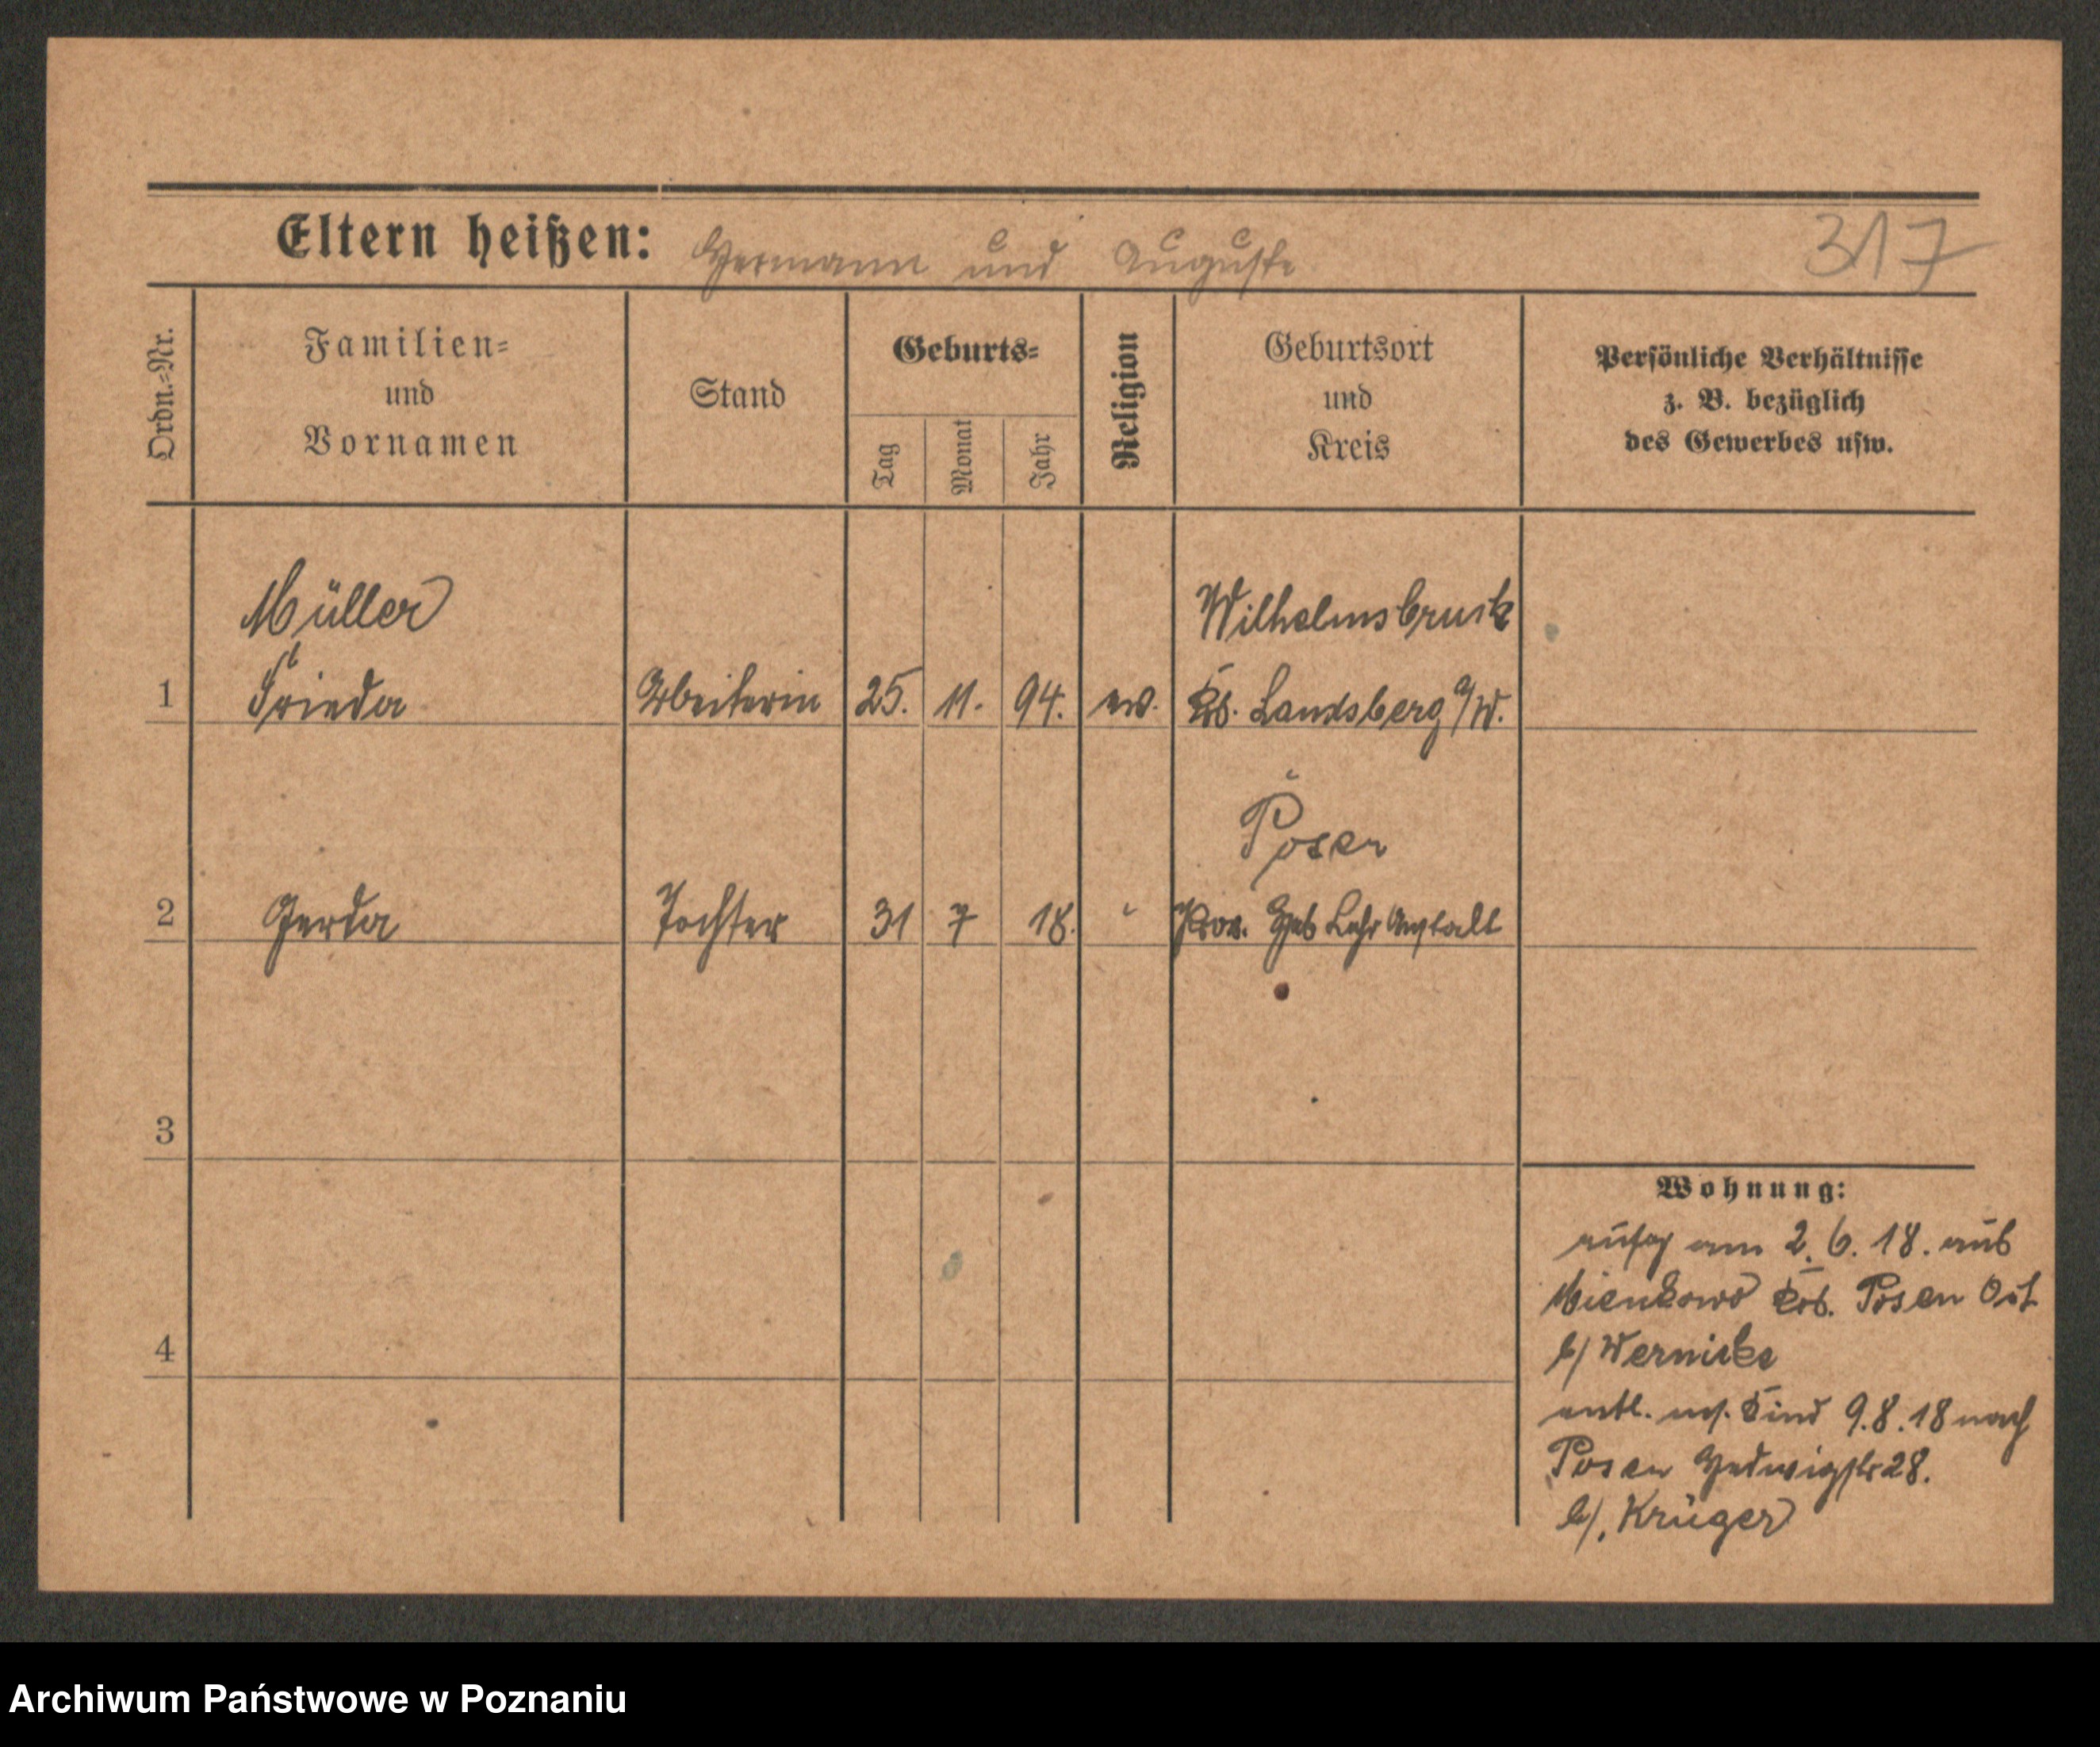 Eltern heißen: Hermann und Auguste 317
Ordn.=Nr.
Familien=
und
Vornamen
Stand
Geburts=
Tag
Monat
Jahr
Religion
Geburtsort
und
Kreis
Persönliche Verhältnisse
z. B. bezüglich
des Gewerbes usw.
Müller Wilhelmsbruck
1 Frieda Arbeiterin 25. 11. 94. ev. Krs. Landsberg a/W.
Posen
2 Gerda Tochter 31 7 18. " Prov. Heb Lehr Anstalt
3
4
Wohnung:
am 2.6.18. aus
Krs. Posen Ost
b/ Wernicke
entl. m/. Kind 9.8.18 nach
Posen Hedwigstr 28.
b/. Krüger
Archiwum Państwowe w Poznaniu